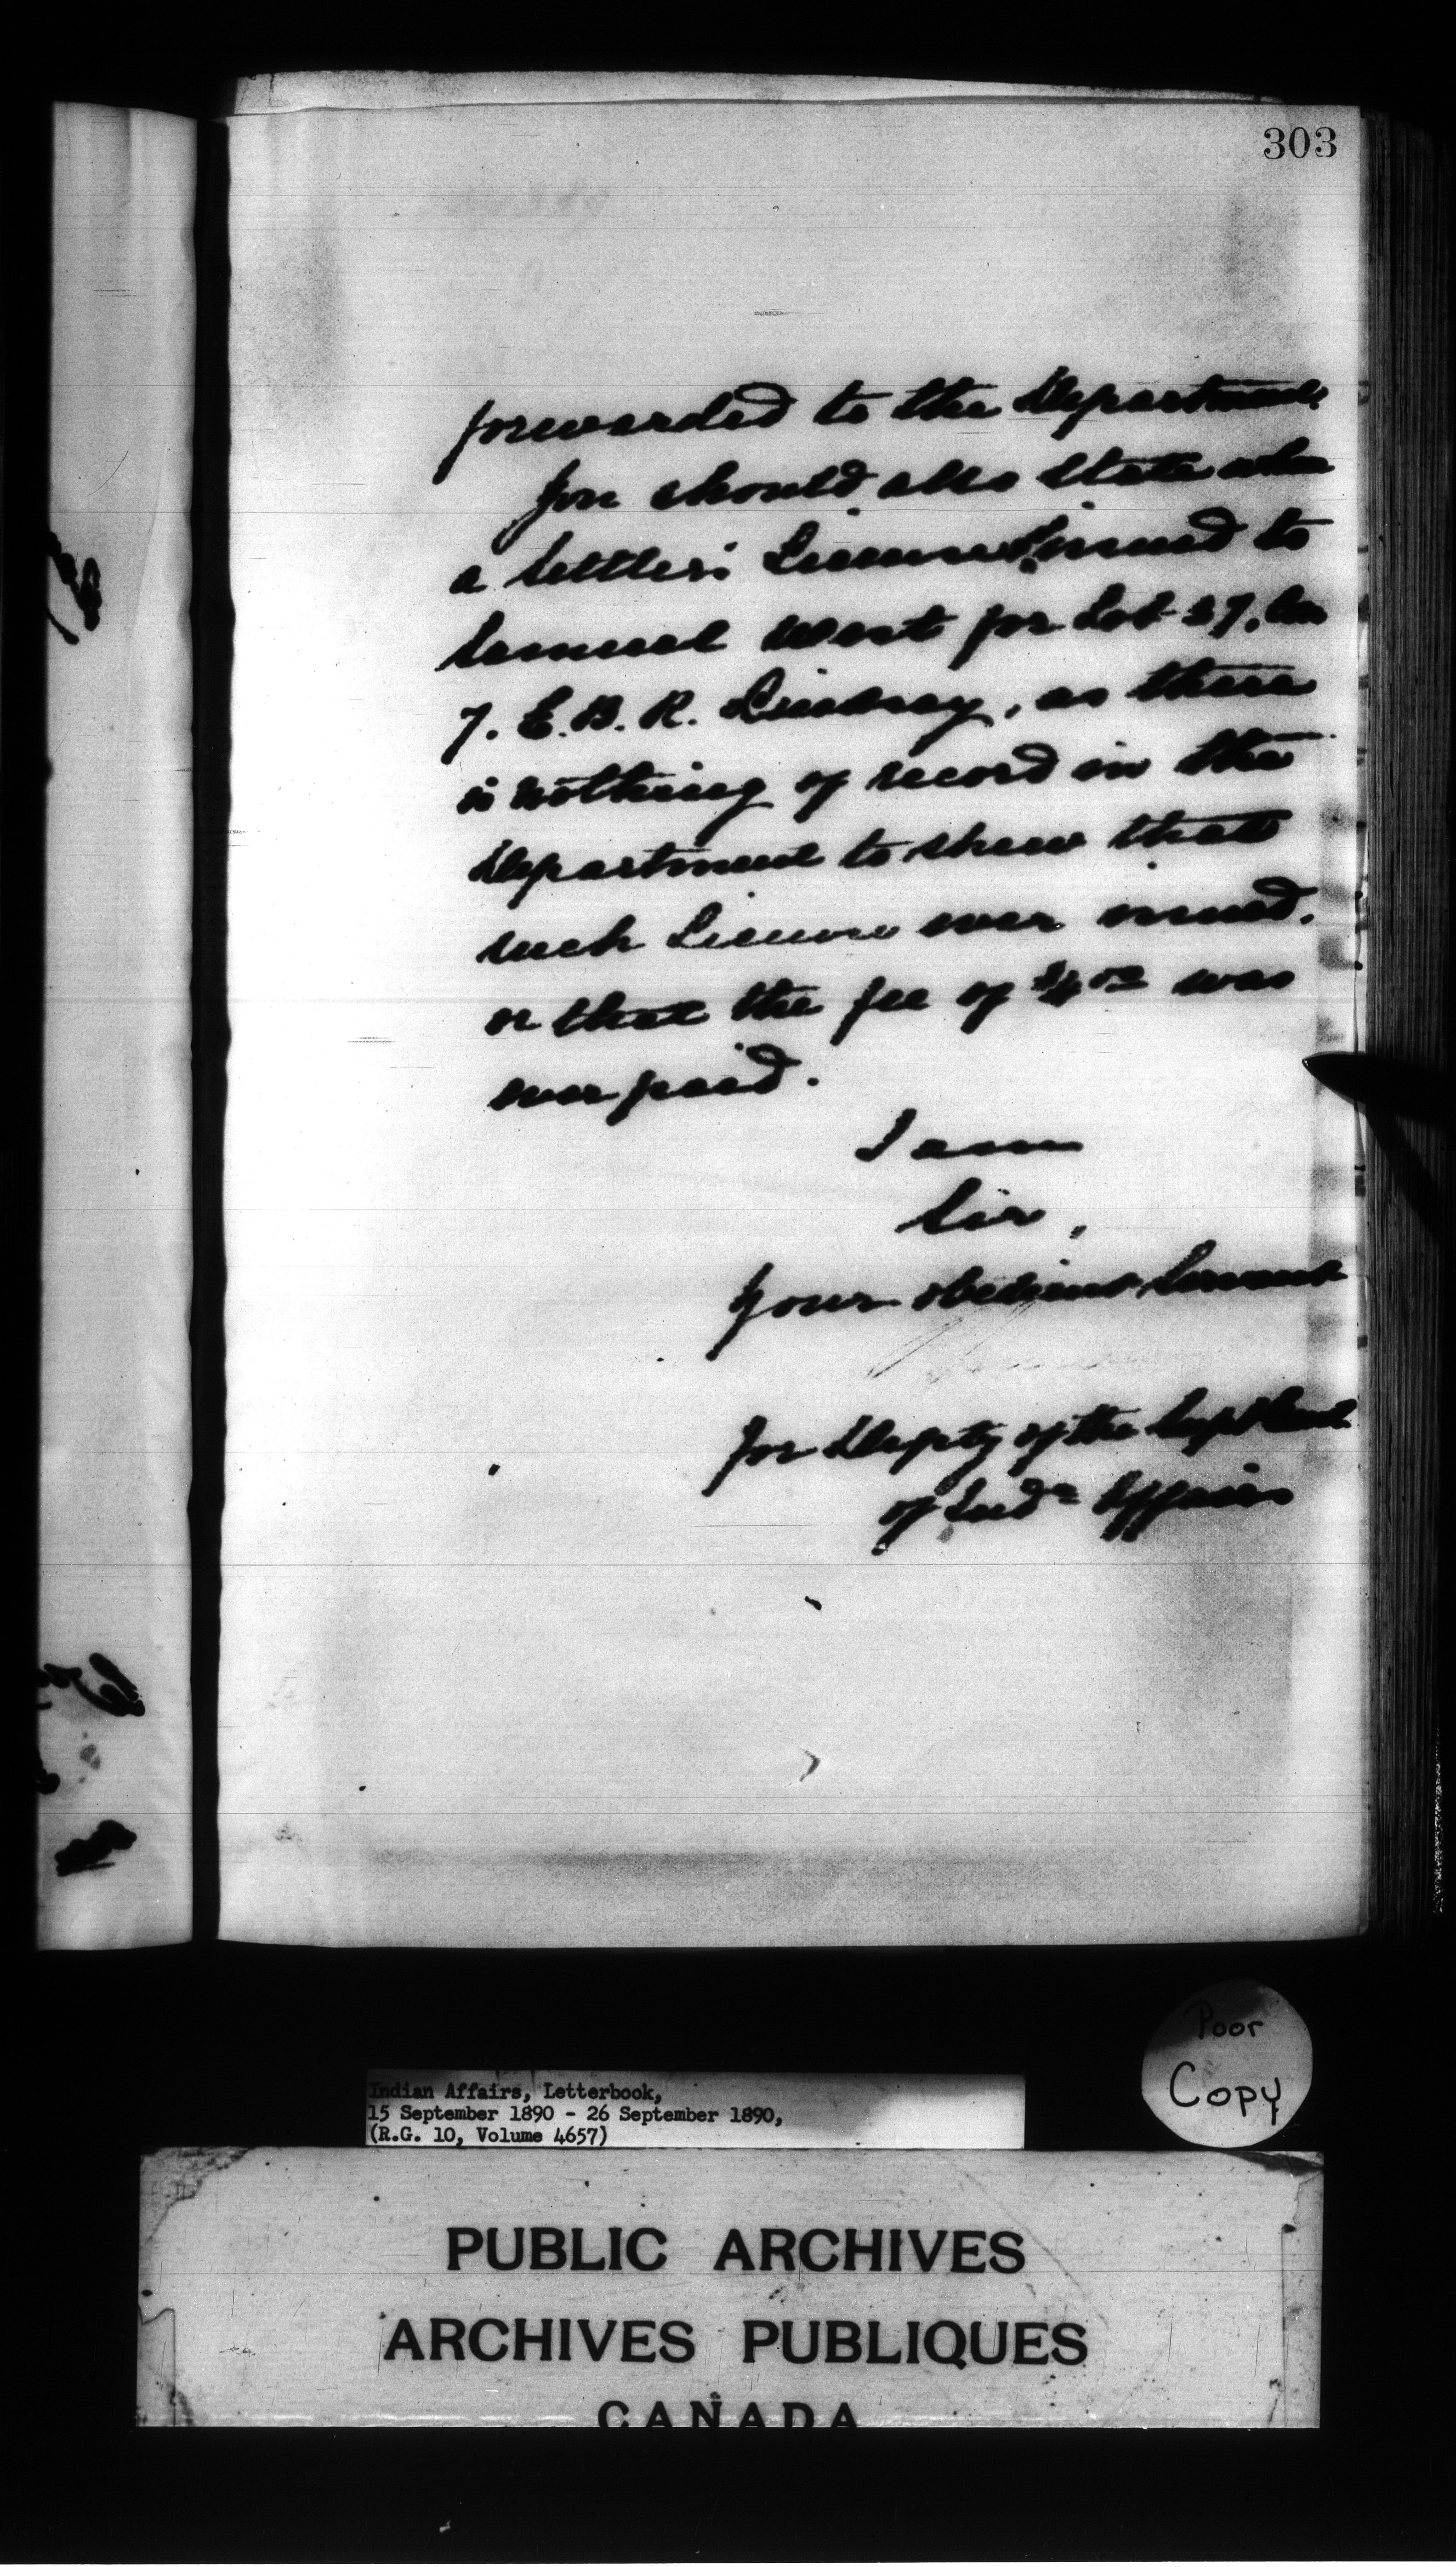 303
forwarded to the Department.
You should also state when
a Settler's License issued to
Samuel West for Lot 27, Con
7. E. B. R. Lindsay, as there
is nothing of record in the
Department to shew that
such License ever issued.
or that the fee of $4 00 was
ever paid.
I am
Sir,
Your obedient Servant
for Depty of the Supt Genl
of Indn Affairs
Poor
Copy
Indian Affairs, Letterbook,
15 September 1890 - 26 September 1890,
(R.G. 10, Volume 4657)
PUBLIC ARCHIVES
ARCHIVES PUBLIQUES
CANADA